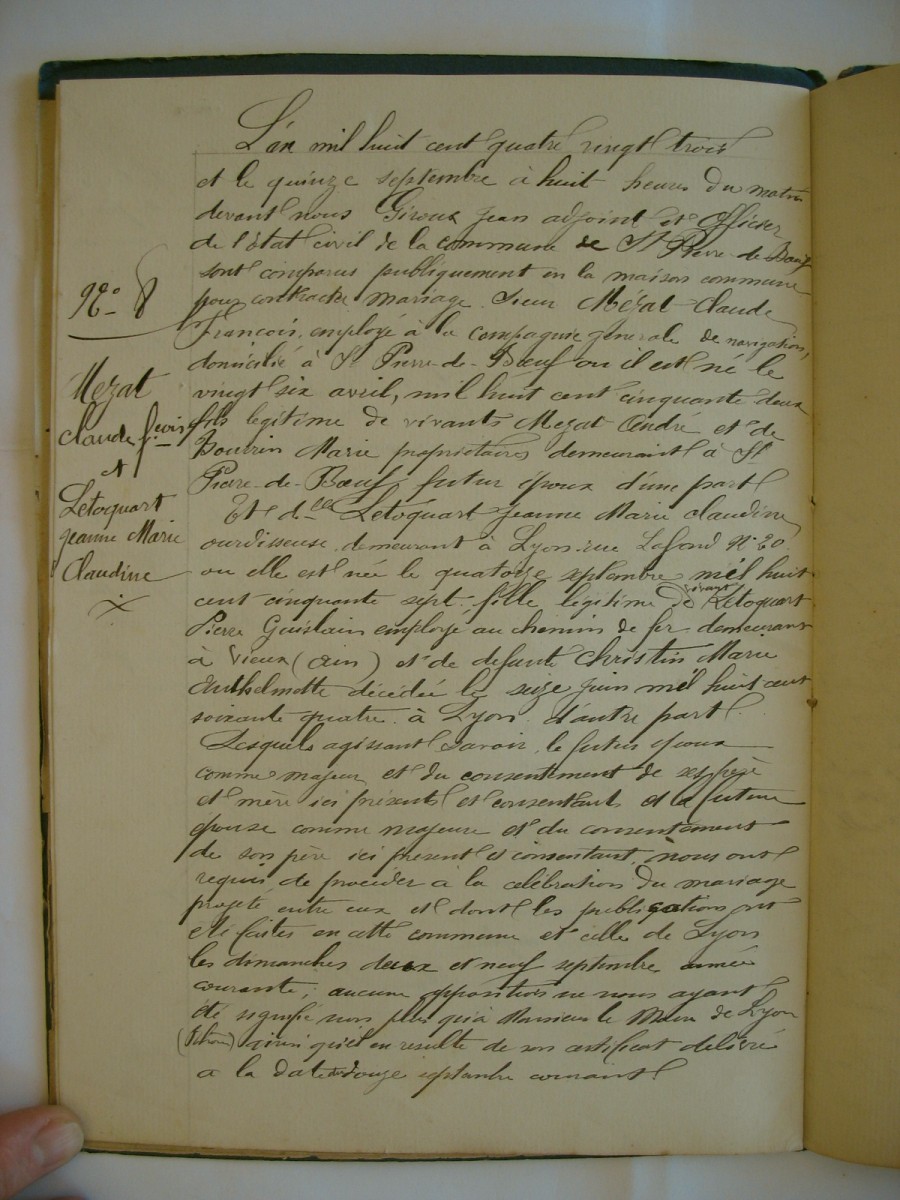 L'an mil huit cent quatre vingt trois
et le quinze septembre à huit heures du matin
devant nous Giroux Jean adjoint et officier
de l'état civil de la commune de St Pierre-de-Bœuf
sont comparus publiquement en la maison commune
pour contracter mariage Sieur Mezat Claude
François, employé à la compagnie générale de navigation,
domicilié à St Pierre-de-Bœuf ou il est né le
vingt six avril, mil huit cent cinquante deux
fils légitime de vivants Mezat André et de
Bouvin Marie propriétaires demeurant à St
Pierre-de-Bœuf, futur époux d'une part
Et dlle Letoquart Jeanne Marie Claudine
ourdisseuse, demeurant à Lyon rue Lafond No 20
ou elle est née le quatorze septembre mil huit
cent cinquante sept. fille légitime de vivant Letoquart
Pierre Guislain employé au chemin de fer demeurant
à Vieux (ain) et de defunte Christin Marie
Anthelmette décédée le seize juin mil huit cent
soixante quatre à Lyon d'autre part.
Lesquels agissant savoir, le futur époux
comme majeur et du consentement de ses père
et mère ici présents et consentants et la future
épouse comme majeure et du consentement
de son père ici présent et consentant, nous ont
requis de procéder à la célébration du mariage
projeté entre eux et dont les publications ont
été faites en cette commune et celle de Lyon
les dimanches deux et neuf septembre année
courante; aucune opposition ne nous ayant
été signifié non plus qu'à Monsieur le Maire de Lyon
(Rhône) ainsi qu'il en résulte de son certificat délivré
a la date du douze septembre courant
No 8
Mezat
Claude fcois
et
Letoquart
Jeanne Marie
Claudine